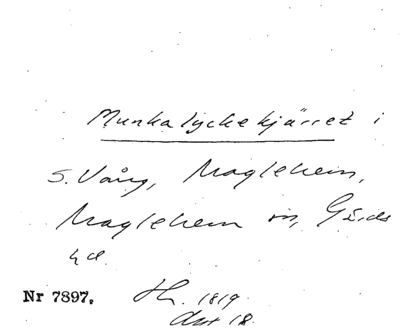 Munkalyckekjärret i
S. Vång, Maglehem,
Maglehem sn, Gärds
hd.
Nr 7897. 1819
Akt 18.